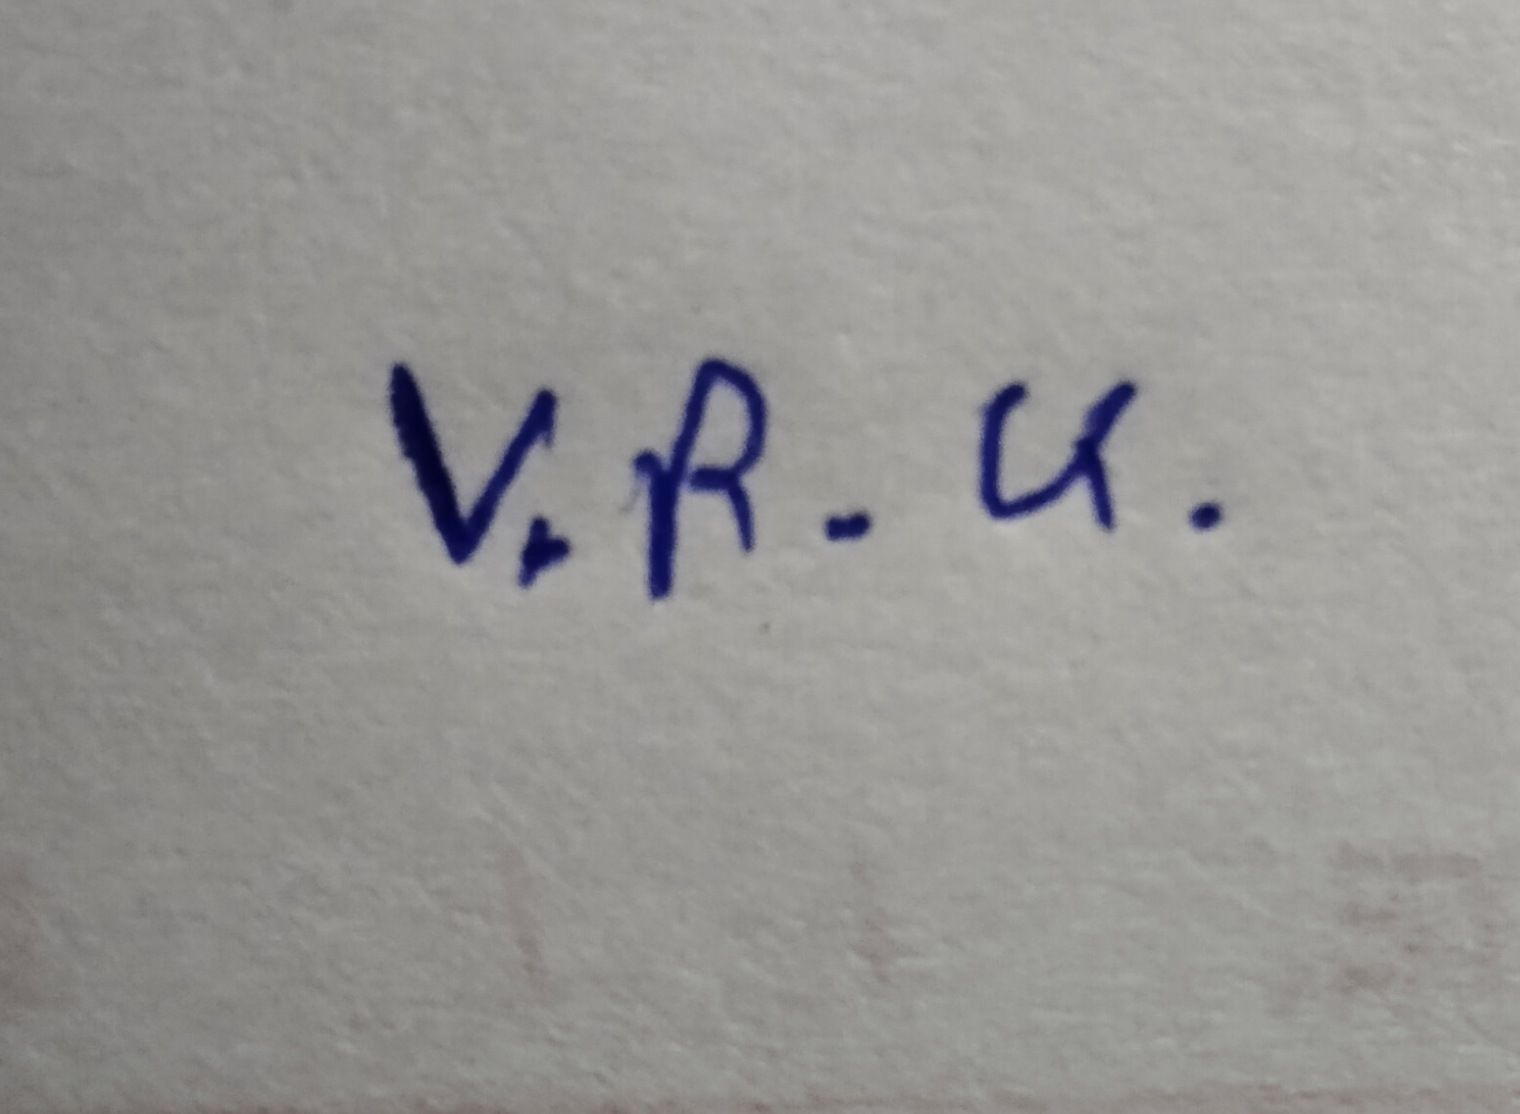 V. R. U.